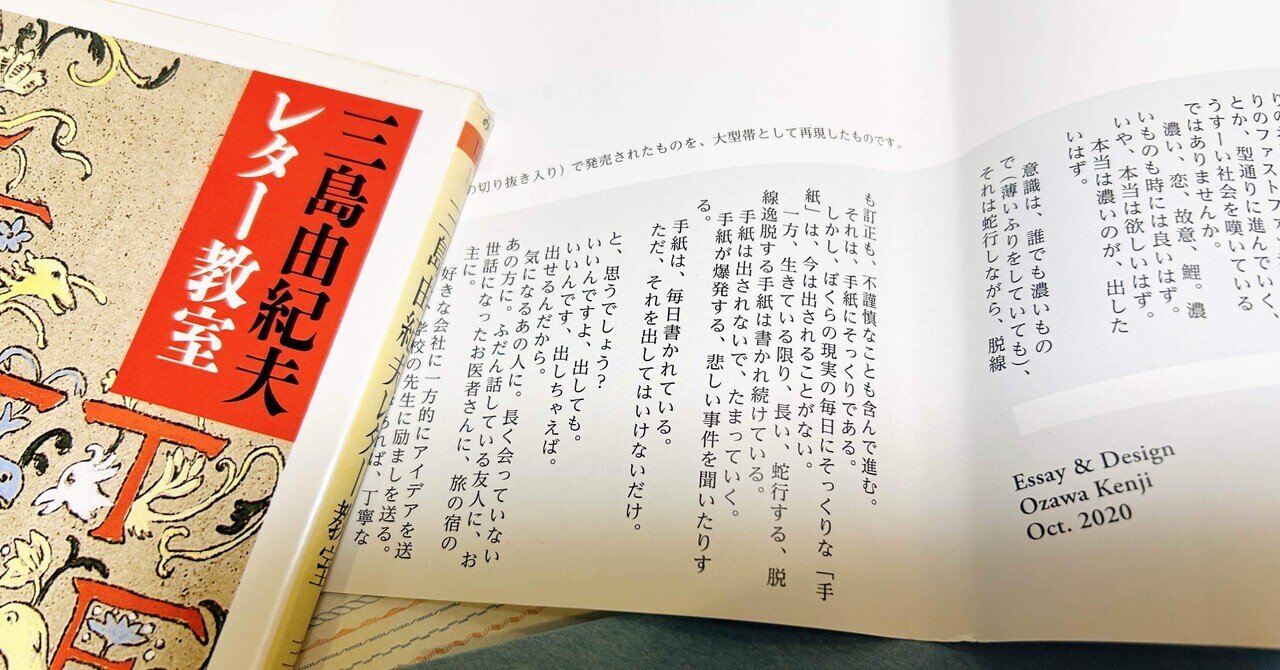 三島由紀夫
レター教室
三島由紀夫レター教室
の切り抜き入り）で発売されたものを、大型帯として再現したものです。
りのファストファ
とか、型通りに進んでいく、
うすーい社会を嘆いている
ではありませんか。
濃い、恋、故意、鯉。濃
いものも時には良いはず。
いや、本当は欲しいはず。
本当は濃いのが、出した
いはず。
意識は、誰でも濃いもの
で（薄いふりをしていても）、
それは蛇行しながら、脱線
も訂正も、不謹慎なことも含んで進む。
それは、手紙にそっくりである。
しかし、ぼくらの現実の毎日にそっくりな「手
紙」は、今は出されることがない。
一方、生きている限り、長い、蛇行する、脱
線逸脱する手紙は書かれ続けている。
手紙は出されないで、たまっていく。
手紙が爆発する、悲しい事件を聞いたりす
る。
手紙は、毎日書かれている。
ただ、それを出してはいけないだけ。
と、思うでしょう？
いいんですよ、出しても。
いいんです、出しちゃえば。
出せるんだから。
気になるあの人に。長く会っていない
あの方に。ふだん話している友人に、お
世話になったお医者さんに、旅の宿の
主に。
好きな会社に一方的にアイデアを送
学校の先生に励ましを送る。
れば、丁寧な
Essay & Design
Ozawa Kenji
Oct. 2020